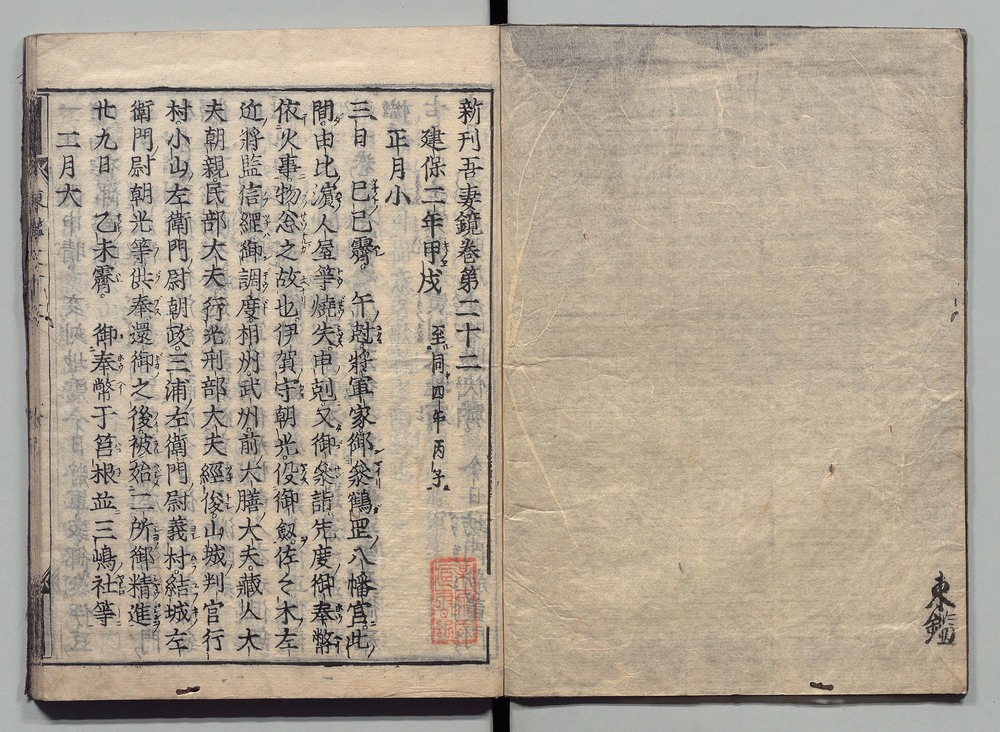 東鑑
新刊吾妻鏡巻第二十二
建保二年甲戌 至同四年丙子
正月小
三日 己巳霽。午尅將軍家御參鶴罡八幡宮此
間。由比濱人屋等燒失申剋又御參詣先度御奉幣
依火事。物忩之故也。伊賀守朝光役御劔。佐々木左
近將監信綱御調度。相州。武州。前大膳大夫。藏人大
夫朝親。民部大夫行光刑部大夫經俊。山城判官行
村。小山左衛門尉朝政。三浦左衛門尉義村結城左
衛門尉朝光等供奉。還御之後。被始二所御精進
廿九日 乙未霽。 御奉幣于筥根並三嶋社等
二月大